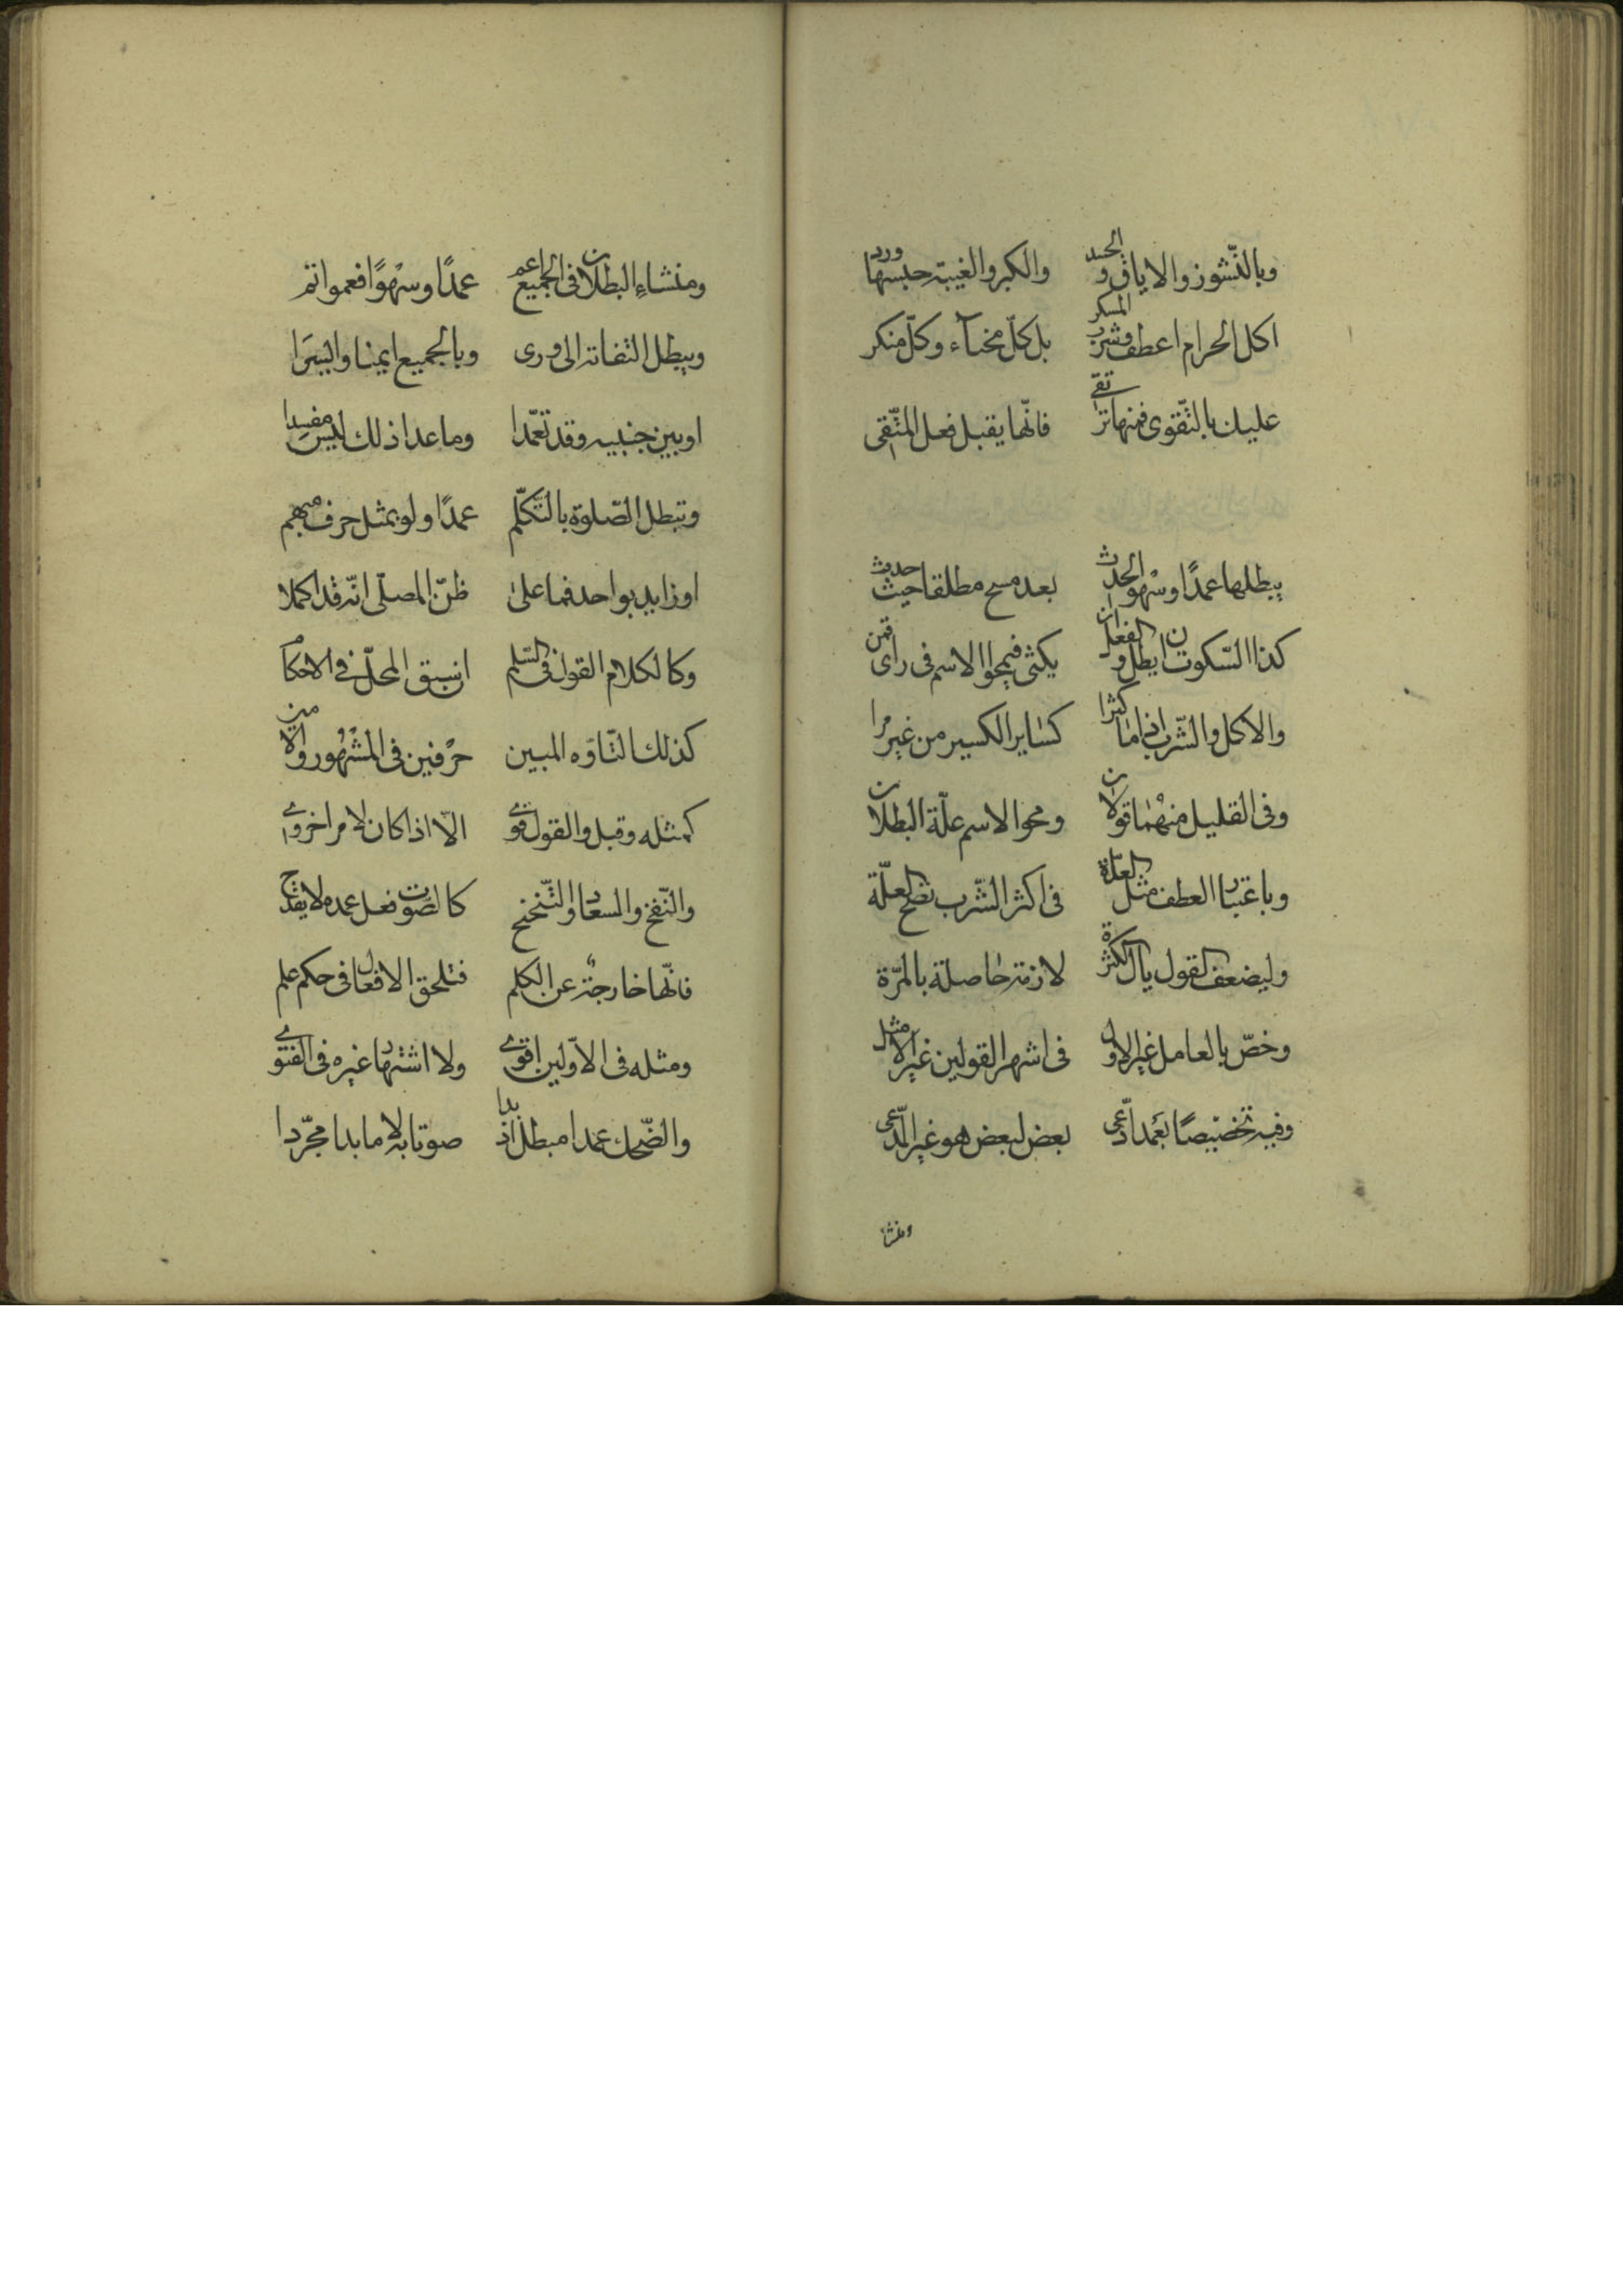 وبالنّشوز والاباق والحسد    والكبر والغيبة حبسها ورد
اكل الحرام اعطف وشرب المسكر    بل كلّ فحشاء وكلّ منكر
عليك بالتّقوى فمنها ترتقى    فانّها يقبل فعل المتّقى
يبطلها عمدًا وسهوًا الحدث    بعد مسح مطلقا حيث حدث
كذا السّكوت ان يطل والفعل ان    يكثر فيمحو الاسم فى راى قمن
والاكل والشّرب اذا ما كثرا    كساير الكسير من غير مرا
وفى القليل منهما قولان    ومحو الاسم علّة البطلان
وباعتبار العطف مثل العلّة    فى اكثر الشّرب تصحّ العلّة
وليضعف القول بان الكثرة    لازمة حاصلة بالمرّة
وخصّ بالعامل غير الاول    فى اشهر القولين غير الامثل
وفيه تخصيصًا بعمد ادّعى    بعض لبعض هو غير المدّعى
ومنشا
ومنشاء البطلان فى الجميع اعم    عمدًا وسهوًا فعموا تم
ويبطل التفاته الى ورى    وبالجميع ايمنا وايسرا
او بين جنبيه وقد تعمّدا    وما عدا ذلك ليس مفسدا
وتبطل الصّلوة بالتّكلّم    عمدًا ولو بمثل حرف مبهم
او زايد بواحد فما على    ظنّ المصلّى انّه قد اكملا
وكالكلام القول فى السّلم    ان سبق المحلّ فى الاحكام
كذلك التّاوّه المبين    حرفين فى المشهور والانين
كمثله وقيل والقول قوى    الّا اذا كان لامر اخروى
والنّفخ والسعال والتّنحنح    كالصّوت فعل عمده لا يقدح
فانّها خارجة عن الكلم    فتلحق الافعال فى حكم علم
ومثله فى الاوّلين اقوى    ولا اشتهار غيره فى الفتوى
والضّحك عمدا مبطل اذا بدا    صوتا به لا ما بدا مجرّدا